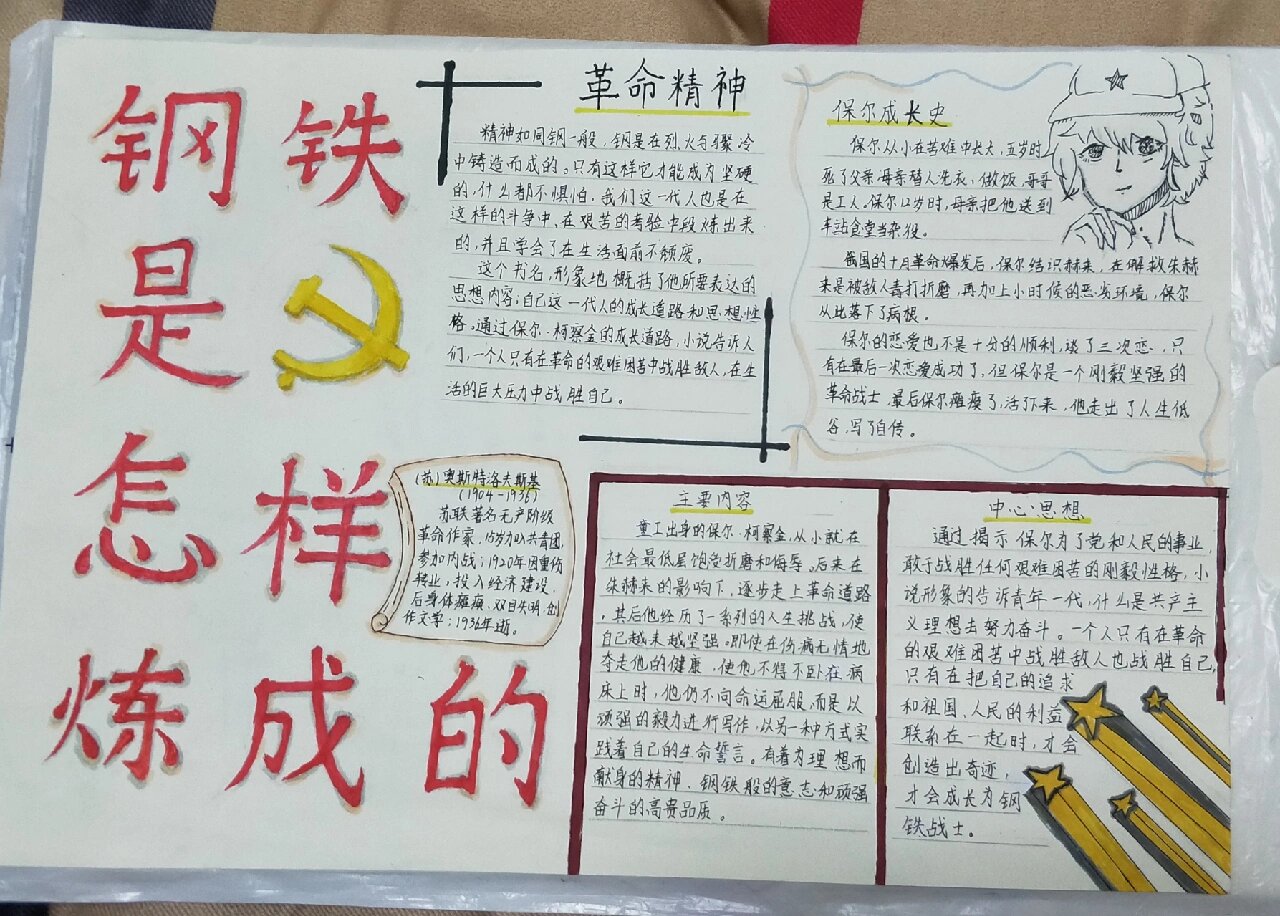 钢铁
是
怎样
炼成的
革命精神
精神如同钢一般，钢是在烈火与骤冷
中铸造而成的。只有这样它才能成为坚硬
的，什么都不惧怕，我们这一代人也是在
这样的斗争中、在艰苦的考验中段炼出来
的，并且学会了在生活面前不颓废。
这个书名，形象地概括了他所要表达的
思想内容；自己这一代人的成长道路和思想性
格，通过保尔·柯察金的成长道路，小说告诉人
们，一个人只有在革命的艰难困苦中战胜敌人，在生
活的巨大压力中战胜自己。
保尔成长史
保尔从小在苦难中长大，五岁时
死了父亲，母亲替人洗衣、做饭，哥哥
是工人。保尔12岁时，母亲把他送到
车站食堂当杂役。
俄国的十月革命爆发后，保尔结识赫来，在解救朱赫
来是被敌人毒打折磨，再加上小时候的恶劣环境，保尔
从此落下了病根。
保尔的恋爱也不是十分的顺利，谈了三次恋，只
有在最后一次恋爱成功了，但保尔是一个刚毅坚强的
革命战士，最后保尔瘫痪了，活下来，他走出了人生低
谷，写了自传。
(苏)奥斯特洛夫斯基
(1904-1936)
苏联著名无产阶级
革命作家，15岁加入共青团，
参加内战；1920年因重伤
转业，投入经济建设，
后身体瘫痪，双目失明，创
作文学；1936年逝。
主要内容
童工出身的保尔·柯察金，从小就在
社会最低层饱受折磨和侮辱。后来在
朱赫来的影响下，逐步走上革命道路
，其后他经历了一系列的人生挑战，使
自己越来越坚强。即使在伤病无情地
夺走他的健康，使他不得不卧在病
床上时，他仍不向命运屈服，而是以
顽强的毅力进行写作，以另一种方式实
践着自己的生命誓言。有着为理想而
献身的精神、钢铁般的意志和顽强
奋斗的高贵品质。
中心思想
通过揭示保尔为了党和人民的事业，
敢于战胜任何艰难困苦的刚毅性格，小
说形象的告诉青年一代，什么是共产主
义理想去努力奋斗。一个人只有在革命
的艰难困苦中战胜敌人也战胜自己，
只有在把自己的追求
和祖国、人民的利益
联系在一起时，才会
创造出奇迹，
才会成长为钢
铁战士。